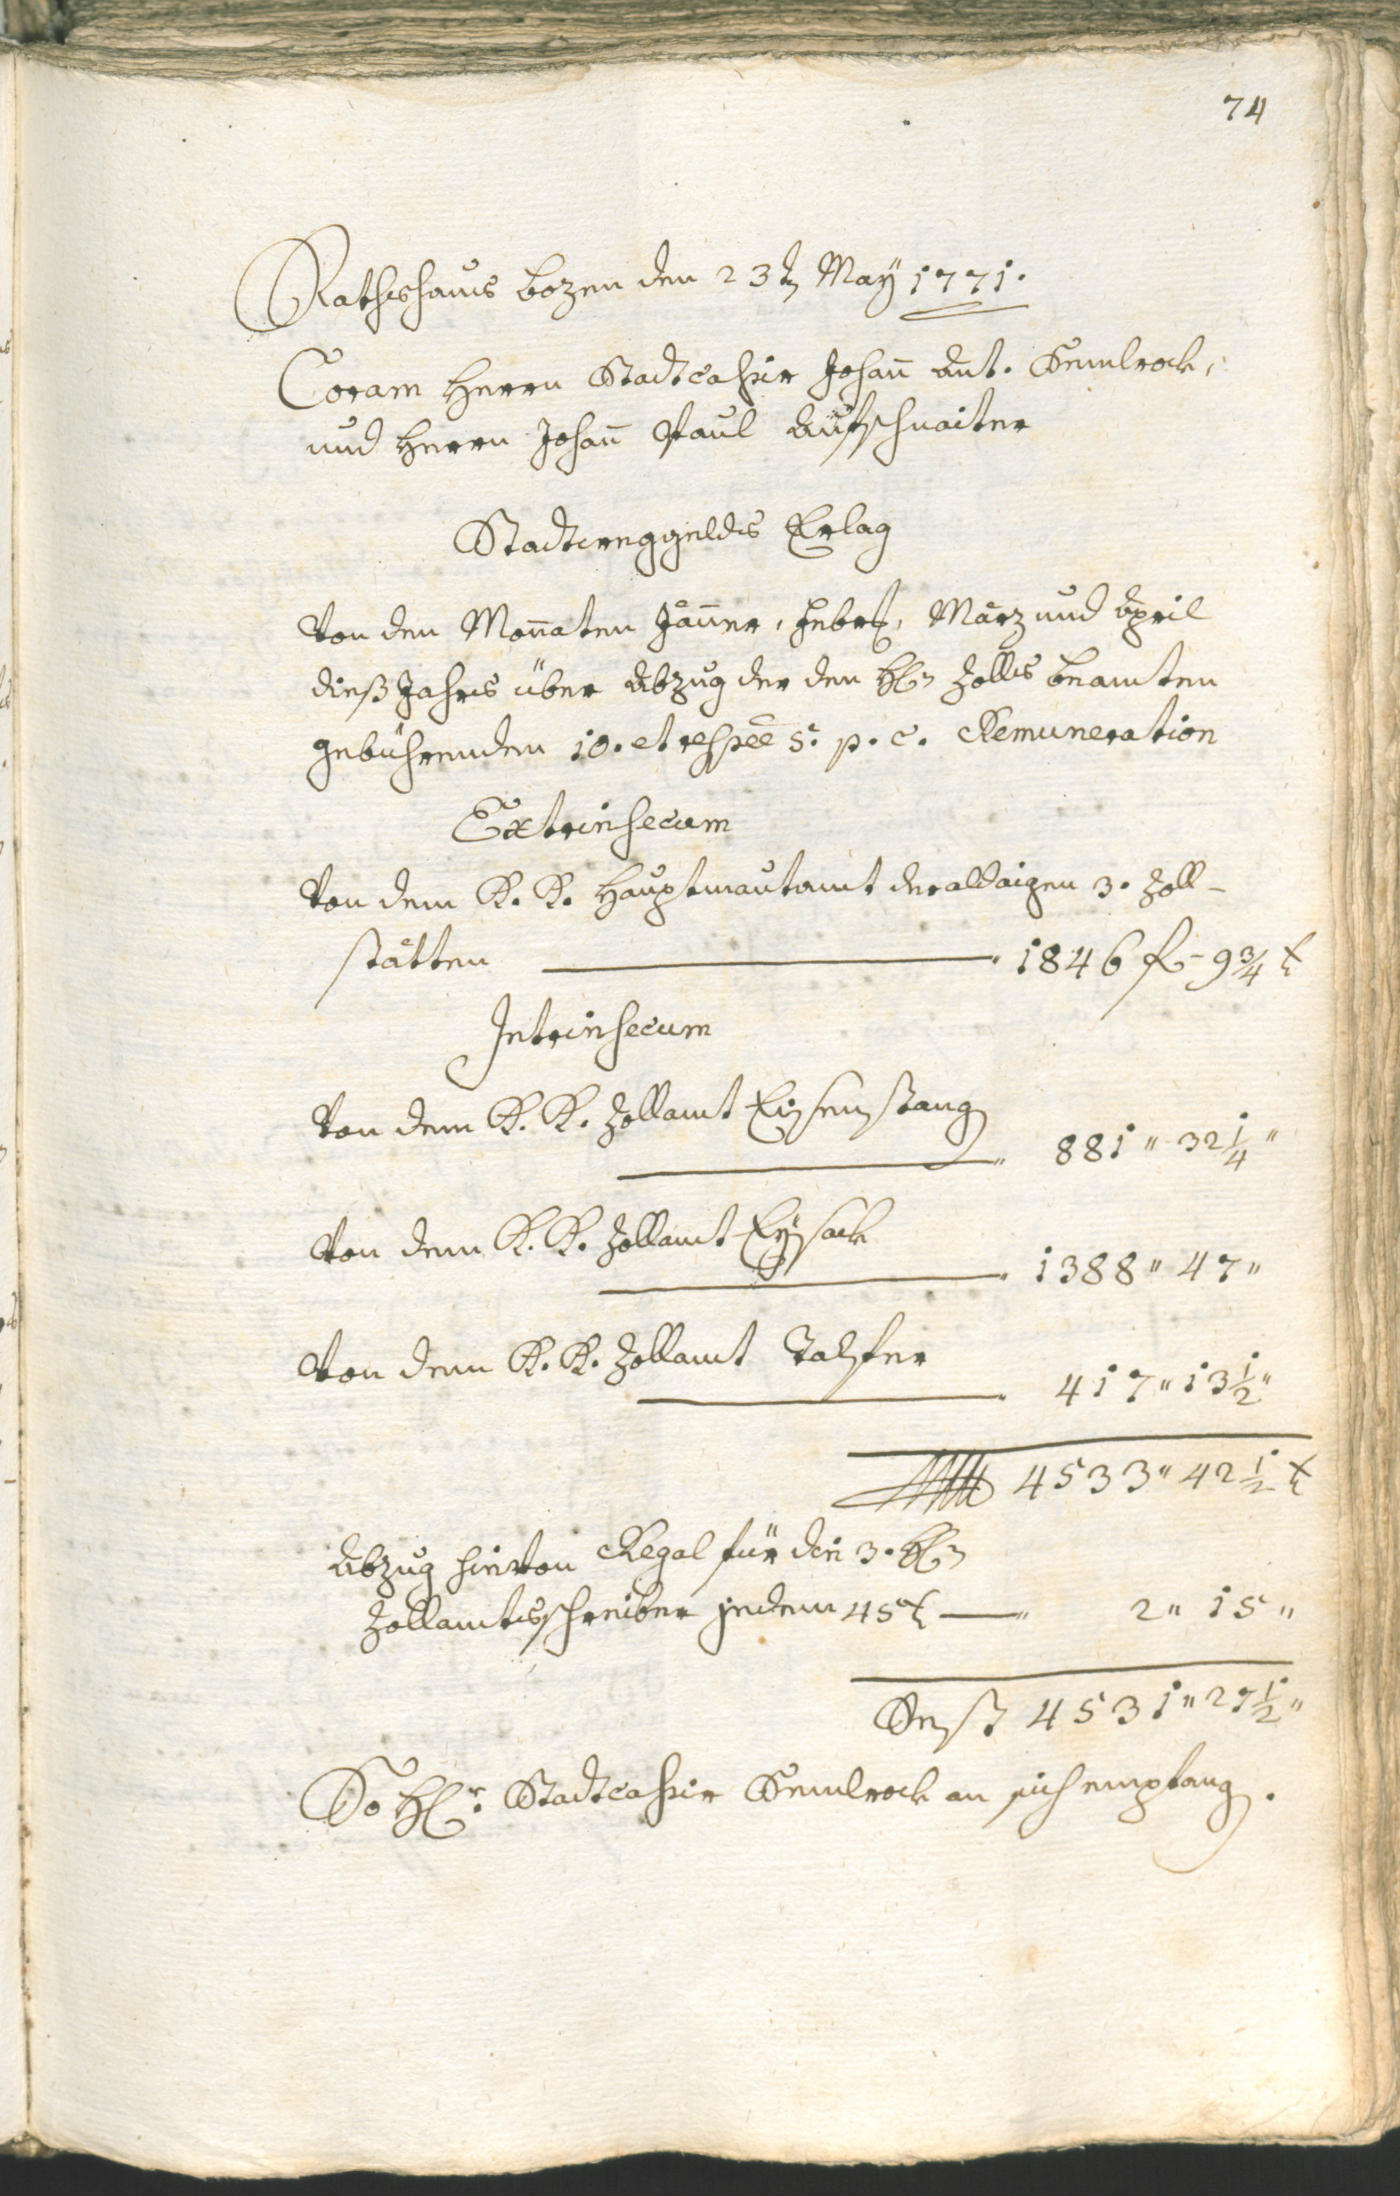 74
Rathshaus Bozen den 23ten May 1771.
Coram Herrn Stadtcassir Johañ Ant.
und Herrn Johañ Paul Aufschnaiter
Stadtweggelds Erlag
Von den Moñaten Jäñer, Febr., März und April
dieß Jahrs über Abzug der den H. Zolls beamten
gebührenden 10. et respec̄e 5. p. c. Remuneration
Extrinsecum
Von dem K. K. Hauptmautamt der aldaigen 3. Zoll-
stätten 1846 f - 9 3/4 x
Intrinsecum
Von dem K. K. Zollamt Eisenstang
881 " 32 1/4 "
Von dem K. K. Zollamt Eÿsack
1388 " 47 "
Von dem K. K. Zollamt Talfer
417 " 13 1/2 "
4533 " 42 1/2 x
Abzug hievon Regal für die 3. H.
Zollamtsschreiber jedem 45 x " 2 " 15 "
Rest 4531 " 27 1/2 "
So Hr. Stadtcassir an sich empfang.